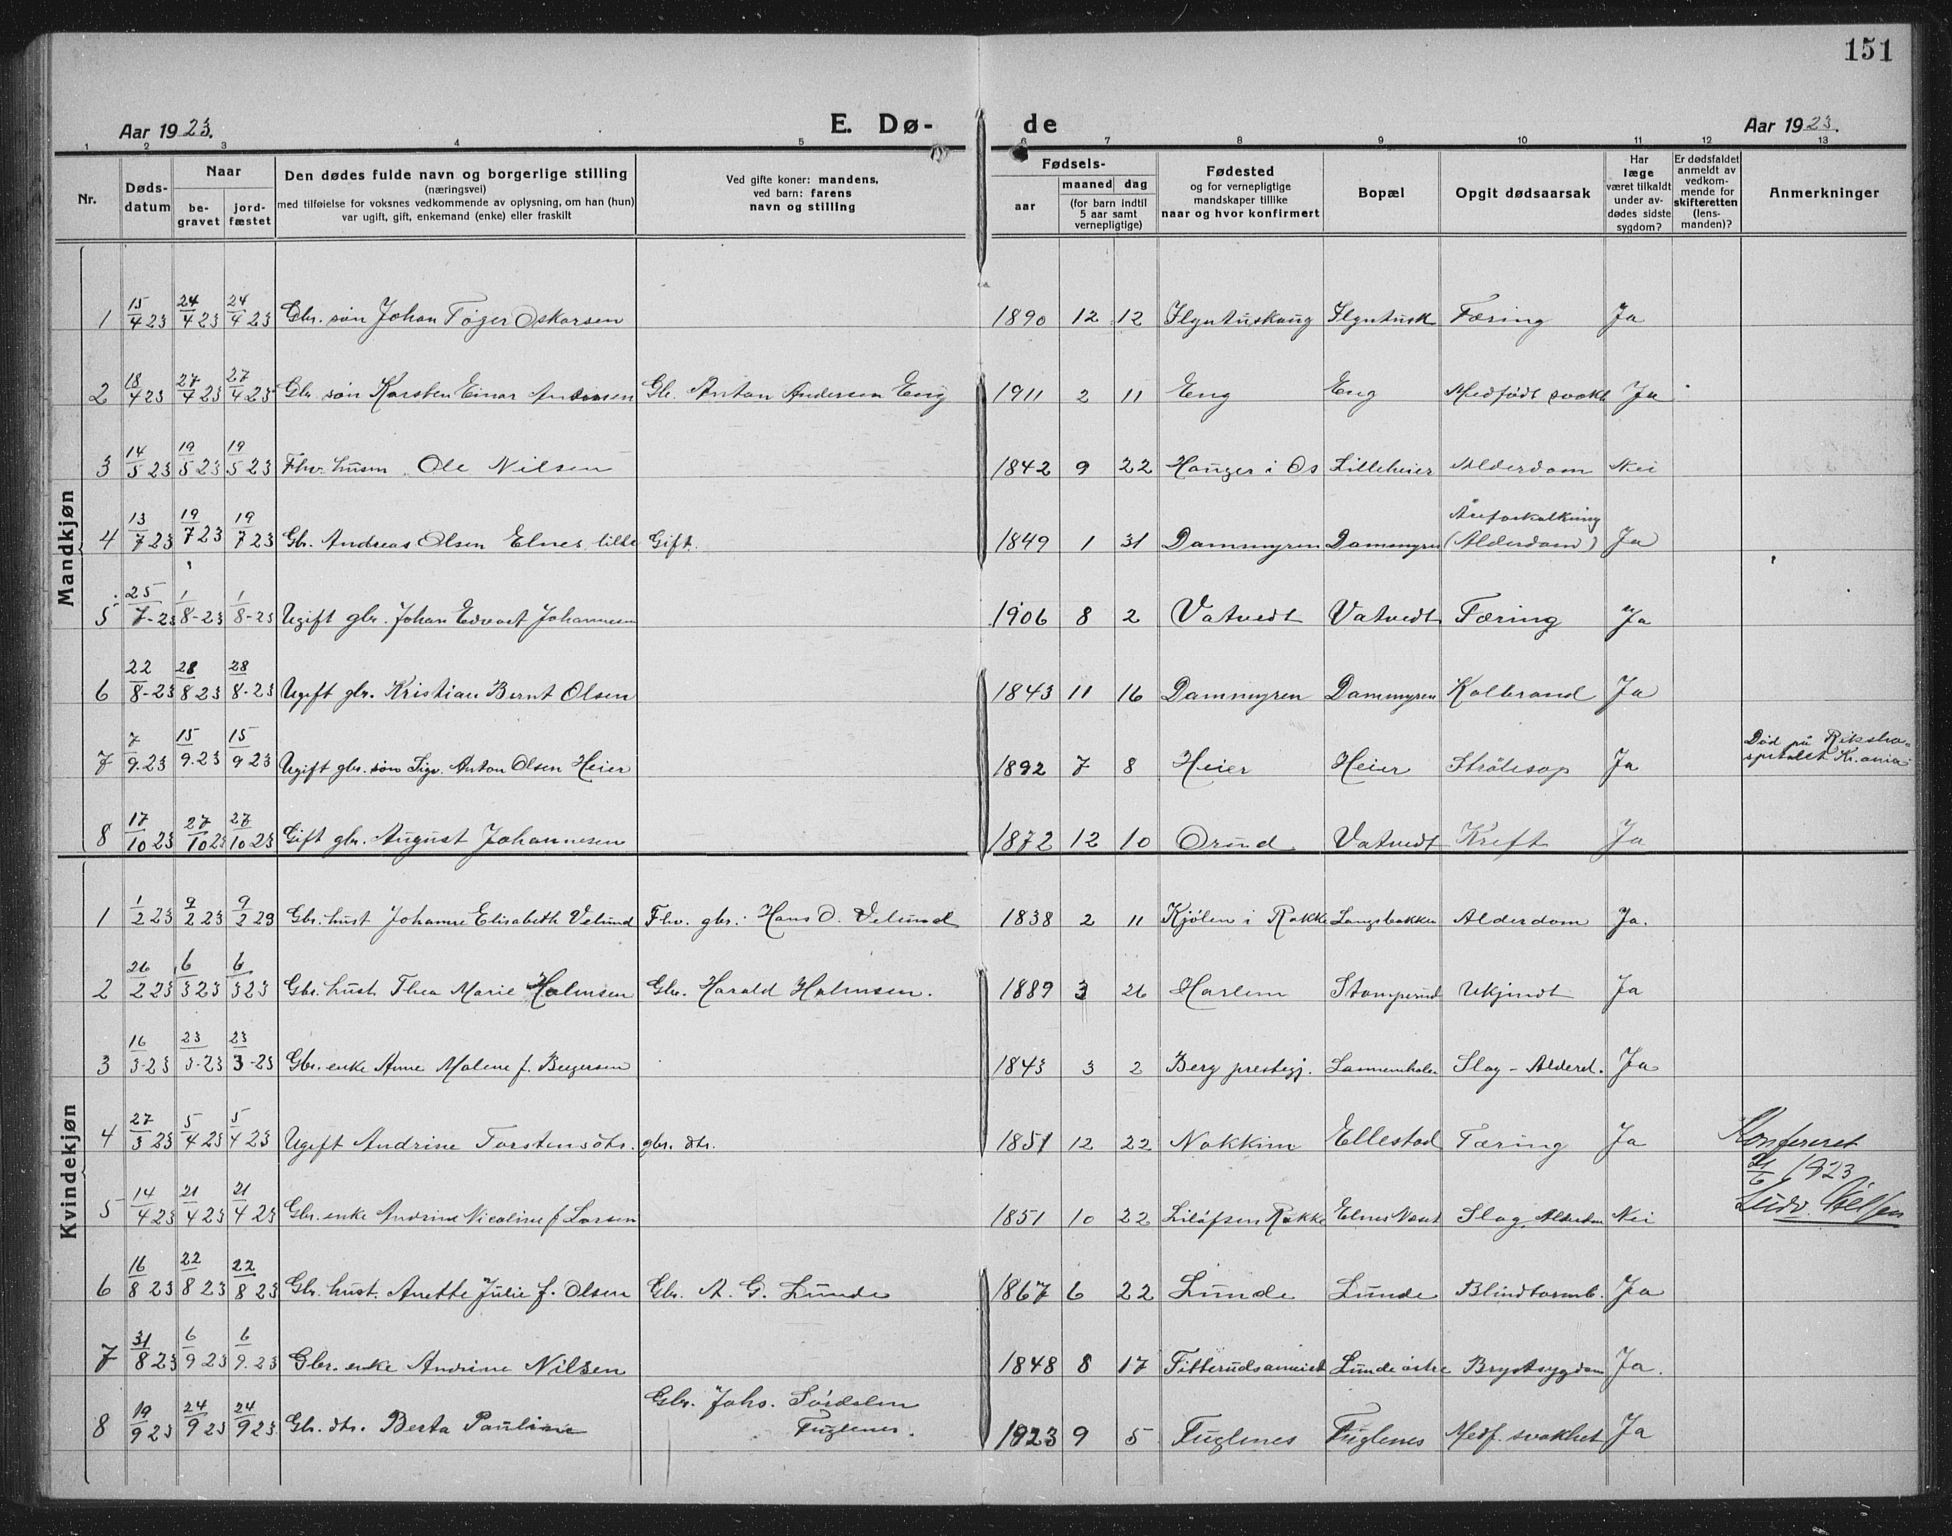 151
Aar 1923. E. Dø- de Aar 1923.
1 2 3 4 5 6 7 8 9 10 11 12 13
Nr.
Døds-
datum
Naar
be-
gravet
jord-
fæstet
Den dødes fulde navn og borgerlige stilling
(næringsvei)
med tilføielse for voksnes vedkommende av oplysning, om han (hun)
var ugift, gift, enkemand (enke) eller fraskilt
Ved gifte koner: mandens,
ved barn: farens
navn og stilling
Fødsels-
aar
maaned dag
(for barn indtil
5 aar samt
vernepligtige)
Fødested
og for vernepligtige
mandskaper tillike
naar og hvor konfirmert
Bopæl
Opgit dødsaarsak
Har
læge
været tilkaldt
under av-
dødes sidste
sygdom?
Er dødsfaldet
anmeldt av
vedkom-
mende for
skifteretten
(lens-
manden)?
Anmerkninger
Mandkjøn
1 15/4 23 24/4 23 24/4 23 Gbr. søn Johan Tøger Oskarsen 1890 12 12 Færing Ja
2 18/4 23 27/4 23 27/4 23 Gbr. søn Karsten Einar Andersen Gb. Anton Andersen Eng 1911 2 11 Eng Eng Medfødt svakh Ja
3 14/5 23 19/5 23 19/5 23 Fhv. husm. Ole Nilsen 1842 9 22 Hauger i Os Lilleheier Alderdom Nei
4 13/7 23 19/7 23 19/7 23 Gb. Andreas Olsen Elnes lille Gift. 1849 1 31 Dammyren Dammyren Åreforkalkning (Alderdom) Ja
5 25/7-23 1/8-23 1/8-23 Ugift gbr. Johan Edvart Johannesen 1906 8 2 Vatvedt Vatvedt Færing Ja
6 22/8-23 28/8 23 28/8-23 Ugift gbr. Kristian Bernt Olsen 1843 11 16 Dammyren Dammyren Kolbrand Ja
7 7/9.23 15/9.23 15/9 23 Ugift gbr. søn Sigv. Anton Olsen Heier 1892 7 8 Heier Heier Strålesop Ja Død på Riksho-
spitalet Kr.ania
8 17/10 23 27/10 23 27/10 23 Gift gbr. August Johannesen 1872 12 10 Orud Vatvedt Kreft Ja
Kvindekjøn
1 1/2 23 9/2 23 9/2 23 Gbr. hust Johanne Elisabeth Velund Fhv. gbr. Hans O. Velund 1838 2 11 Kjølen i Rakke Langsbakken Alderdom Ja.
2 26/2 23 6/3 23 6/3 23 Gbr. hust Thea Marie Holmsen Gbr. Harald Holmsen. 1889 3 26 Harlem Stomperud Ukjendt Ja
3 16/3-23 23/3-23 23/3-23 Gbr. enke Anne Malene f. Børgersen 1843 3 2 Berg prestegj. Slag - Alderd. Ja
4 27/3 23 5/4 23 5/4 23 Ugift Andrine Torstensdtr. gbr. dtr. 1851 12 22 Nokkim Ellestad Færing Ja Konfereret
21/6 1923
5 14/4 23 21/4 23 21/4 23 Gbr. enke Andrine Nicoline f Larsen 1851 10 22 Elnes Slag, Alderdom Nei Ludv.
6 16/8 23 22/8 23 22/8 23 Gbr. hust. Anette Julie f. Olsen Gbr. A. G. Lunde 1867 6 22 Lunde Lunde Blindtarmb. Ja
7 31/8 23 6/9 23 6/9.23 Gbr. enke Andrine Nilsen 1848 8 17 Lunde østre Brystsygdom Ja.
8 19/9 23 24/9 23 24/9 23 Gb. dtr. Berta Pauline Gbr. Johs. Sørdalen
Fuglenes. 1923 9 5 Fuglenes Fuglenes Medf. svakhet Ja